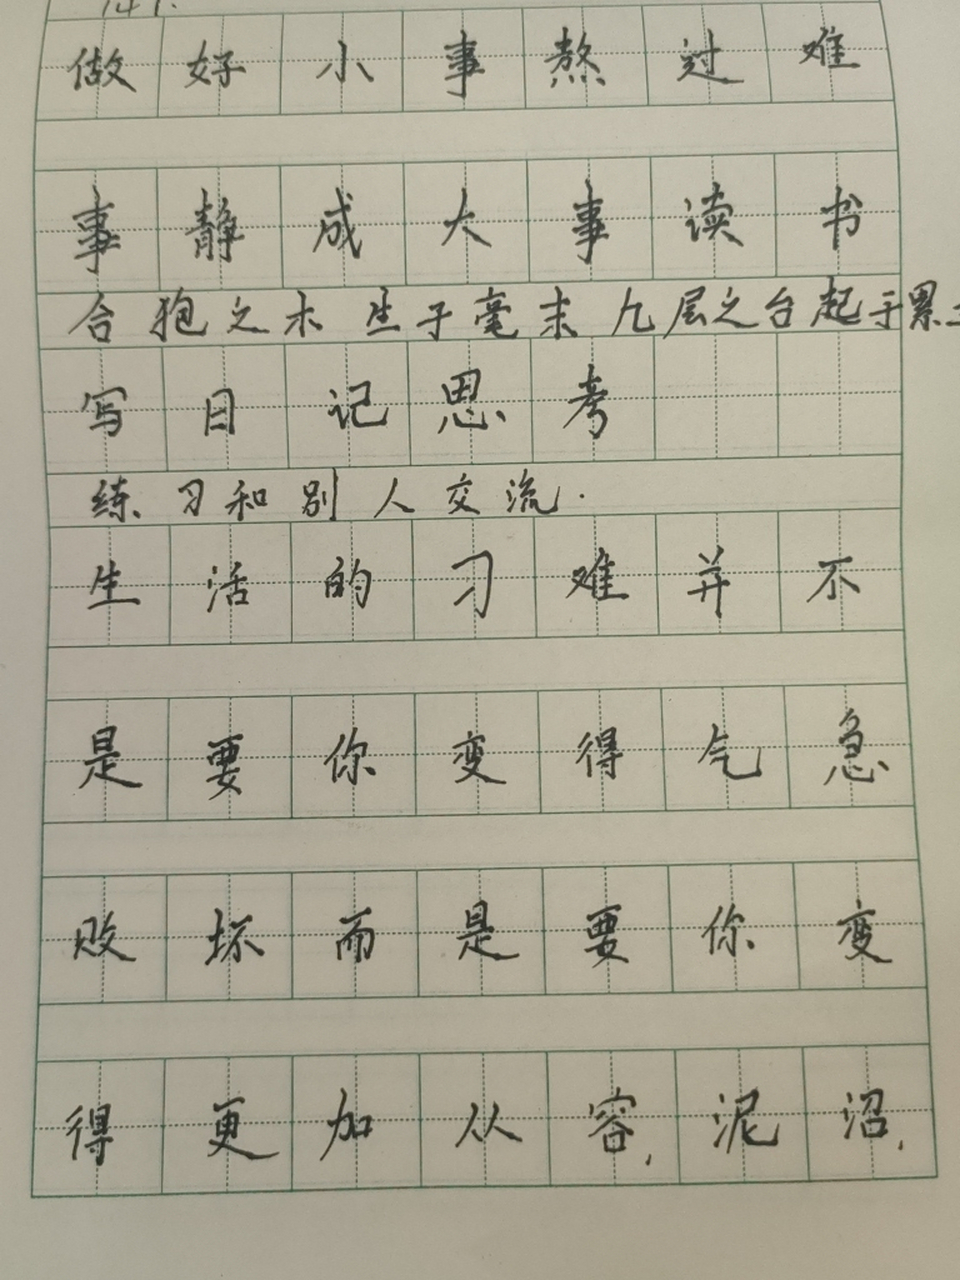 做好小事熬过难
事静成大事读书
合抱之木生于毫末九层之台起于累
写日记思考
练习和别人交流.
生活的刁难并不
是要你变得气急
败坏而是要你变
得更加从容,泥沼,